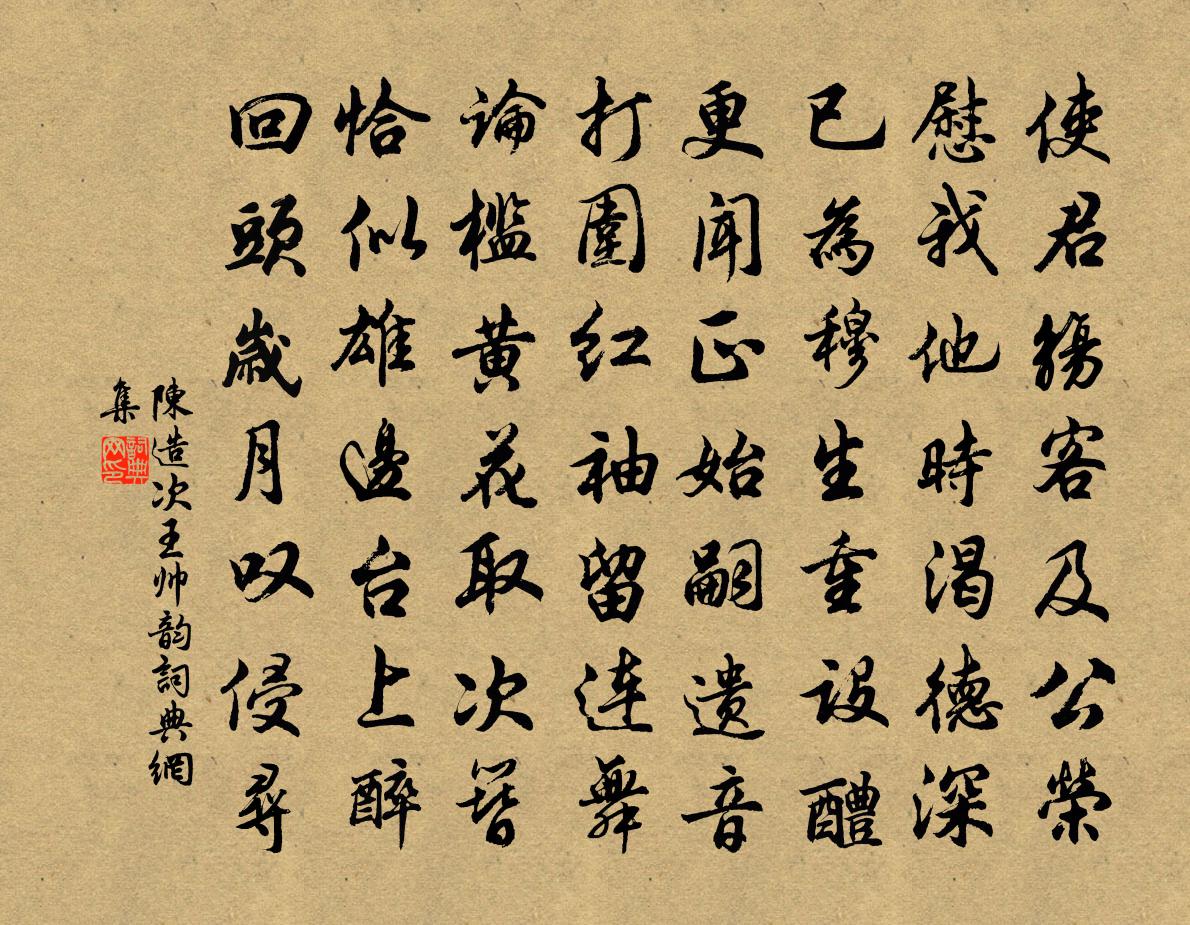 使君觴客及公榮
慰我他時渴德深
已為穆生重設醴
更聞正始嗣遺音
打圍紅袖留連舞
論檻黃花取次簪
恰似雄邊台上醉
回頭歲月叹侵尋
陳造次王帅韵詞典網
集
詞典网印